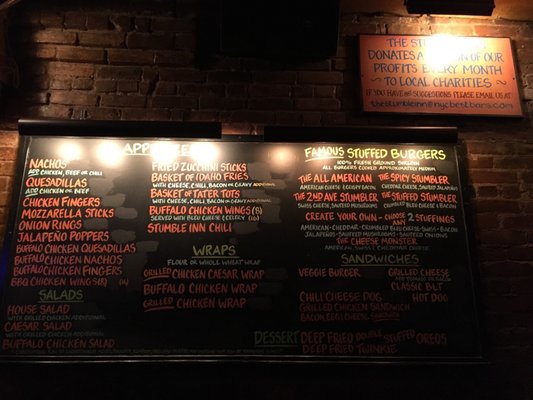 THE STUMBLE INN
DONATES A PORTION OF OUR
PROFITS EVERY MONTH
TO LOCAL CHARITIES
IF YOU HAVE ANY SUGGESTIONS PLEASE EMAIL US AT
thestumbleinn@nycbestbars.com
APPETIZERS
NACHOS
ADD CHICKEN, BEEF OR CHILI
QUESADILLAS
ADD CHICKEN OR BEEF
CHICKEN FINGERS
MOZZARELLA STICKS
ONION RINGS
JALAPEÑO POPPERS
BUFFALO CHICKEN QUESADILLAS
BUFFALO CHICKEN NACHOS
BUFFALO CHICKEN FINGERS
BBQ CHICKEN WINGS
SALADS
HOUSE SALAD
WITH GRILLED CHICKEN ADDITIONAL
CAESAR SALAD
WITH GRILLED CHICKEN ADDITIONAL
BUFFALO CHICKEN SALAD
FRIED ZUCCHINI STICKS
BASKET OF IDAHO FRIES
WITH CHEESE, CHILI, BACON OR GRAVY ADDITIONAL
BASKET OF TATER TOTS
WITH CHEESE, CHILI, BACON OR GRAVY ADDITIONAL
BUFFALO CHICKEN WINGS
SERVED WITH BLEU CHEESE & CELERY
STUMBLE INN CHILI
WRAPS
FLOUR OR WHOLE WHEAT WRAP
GRILLED CHICKEN CAESAR WRAP
BUFFALO CHICKEN WRAP
GRILLED CHICKEN WRAP
FAMOUS STUFFED BURGERS
100% FRESH GROUND SIRLOIN
ALL BURGERS COOKED APPROXIMATELY MEDIUM
THE ALL AMERICAN
AMERICAN CHEESE & CRISPY BACON
THE 2ND AVE STUMBLER
SWISS CHEESE, SAUTEED MUSHROOMS
THE SPICY STUMBLER
CHEDDAR CHEESE, SAUTEED JALAPEÑOS
THE STUFFED STUMBLER
CRUMBLED BLEU CHEESE & BACON
CREATE YOUR OWN - CHOOSE ANY 2 STUFFINGS
AMERICAN - CHEDDAR - CRUMBLED BLEU CHEESE - SWISS - BACON
JALAPEÑOS - SAUTEED MUSHROOMS - SAUTEED ONIONS
THE CHEESE MONSTER
AMERICAN, SWISS & CHEDDAR CHEESE
SANDWICHES
VEGGIE BURGER
GRILLED CHEESE
CLASSIC BLT
CHILI CHEESE DOG
HOT DOG
GRILLED CHICKEN SANDWICH
BACON EGG & CHEESE SANDWICH
DESSERT
DEEP FRIED DOUBLE STUFFED OREOS
DEEP FRIED TWINKIE